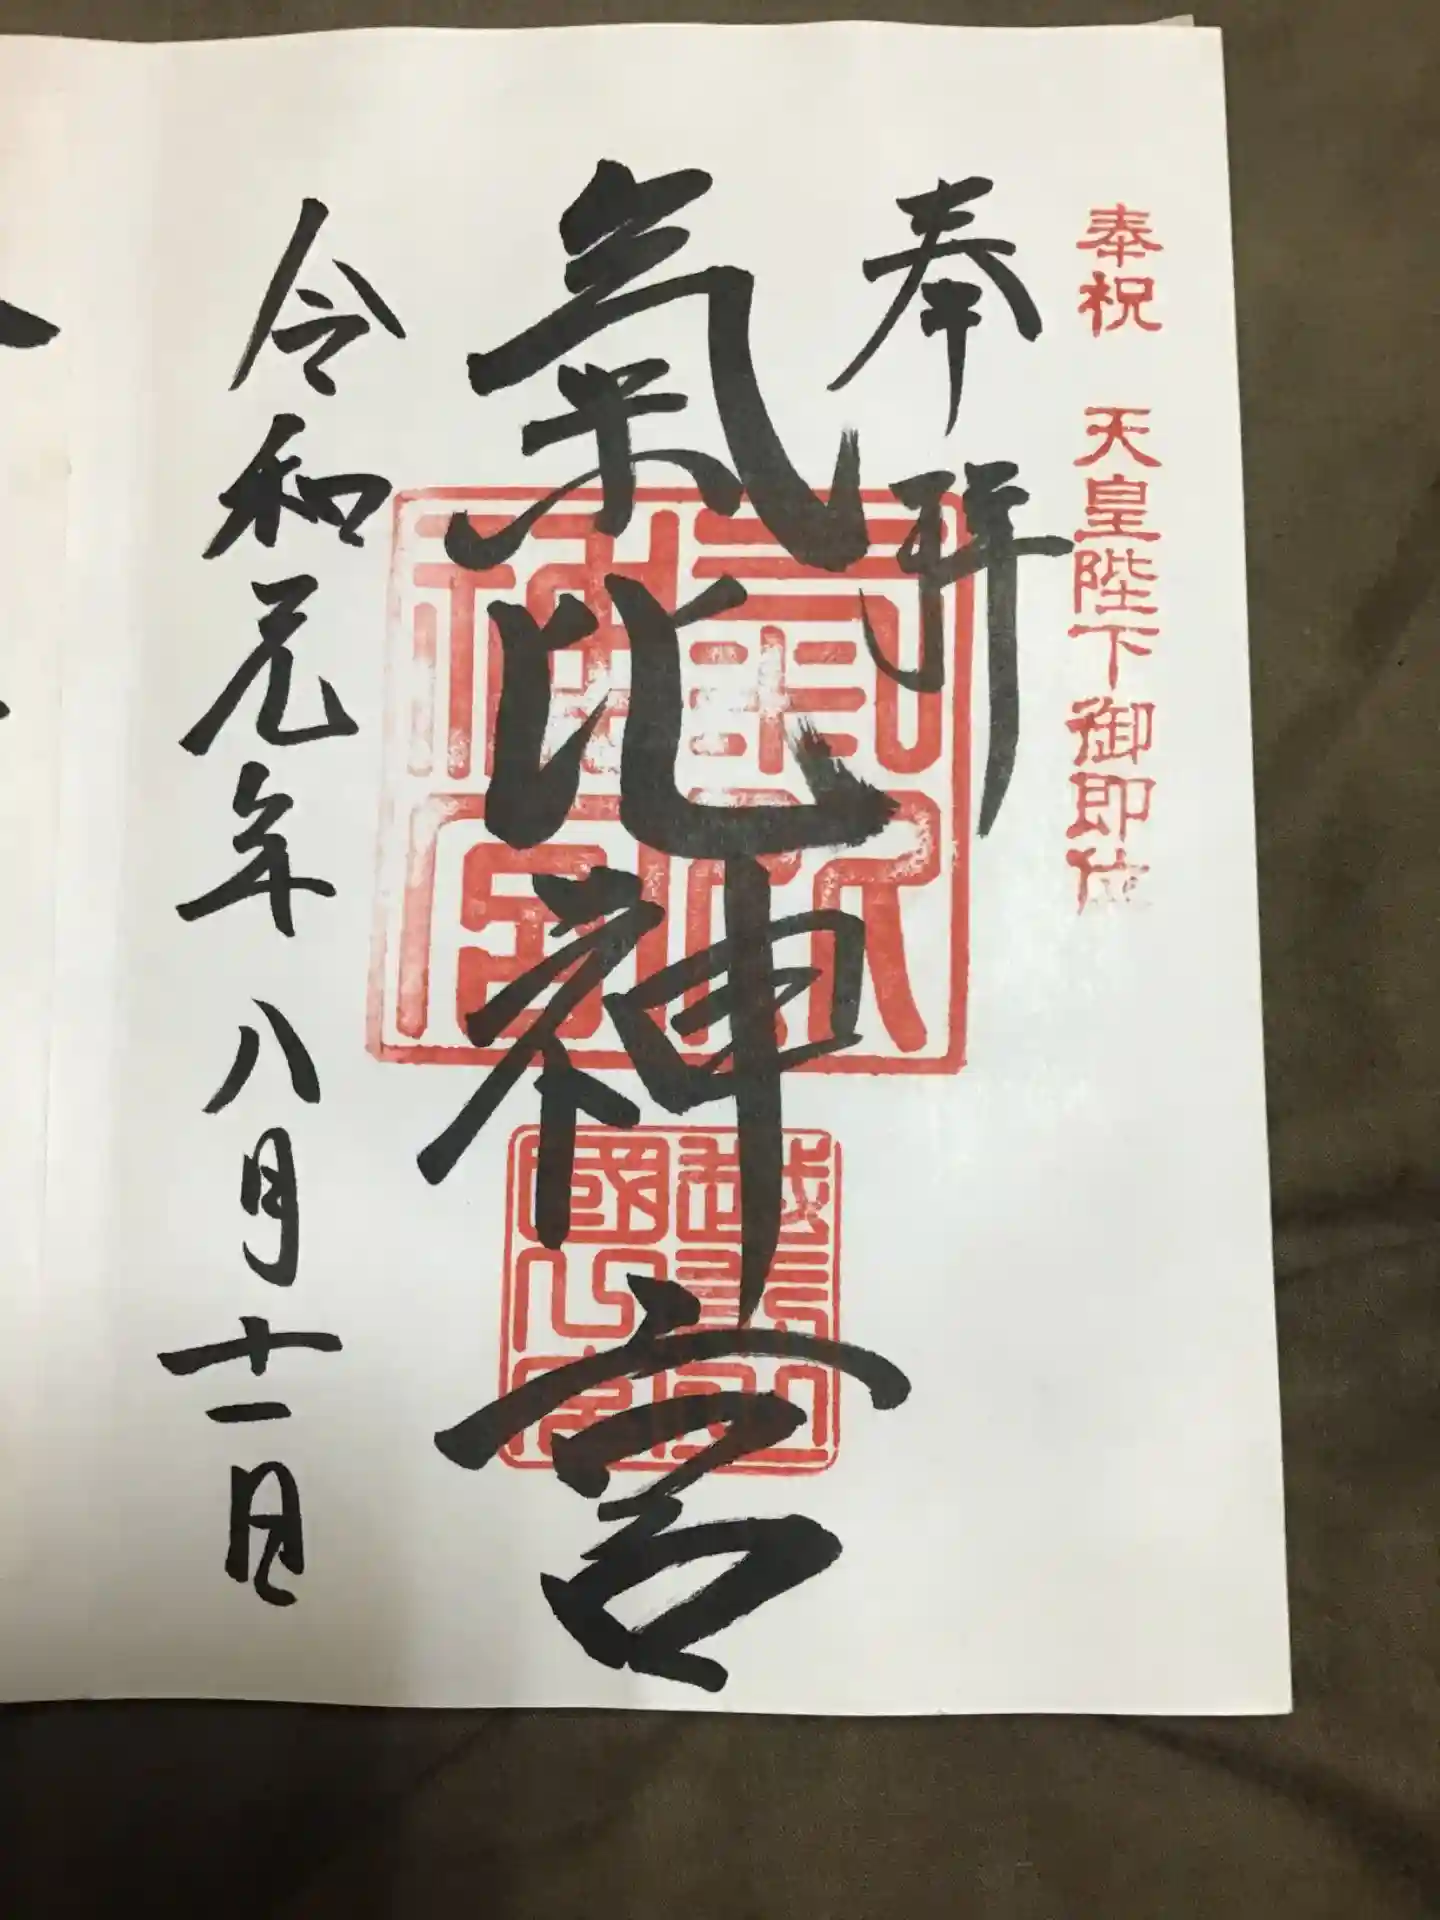 奉祝　天皇陛下御即位
奉拝
氣比神宮
氣比神宮
越前國一之宮
令和元年八月十一日